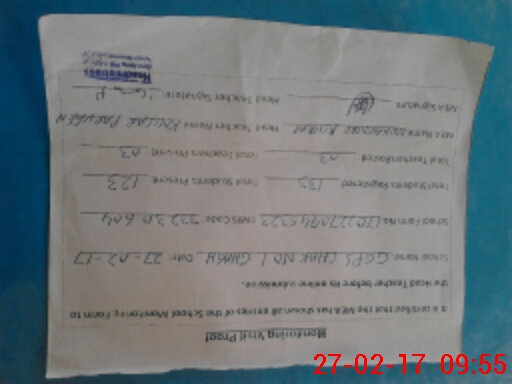 Monitoring Visit Proof
It is certified that the MEA has shown all entries of the School Monitoring Form to
the Head Teacher before its online submission.
School Name: GGPS CHAK NO 1 GHAGH Date: 27-02-17
School Form No EMIS Code 33230604
Total Students Registered 133 Total Students Present 123
Total Teachers Posted 03 Total Teachers Present 03
MEA Name Head Teacher Name KOUSAR PARVEEN
MEA Signature Head Teacher Signature
27-02-17 09:55